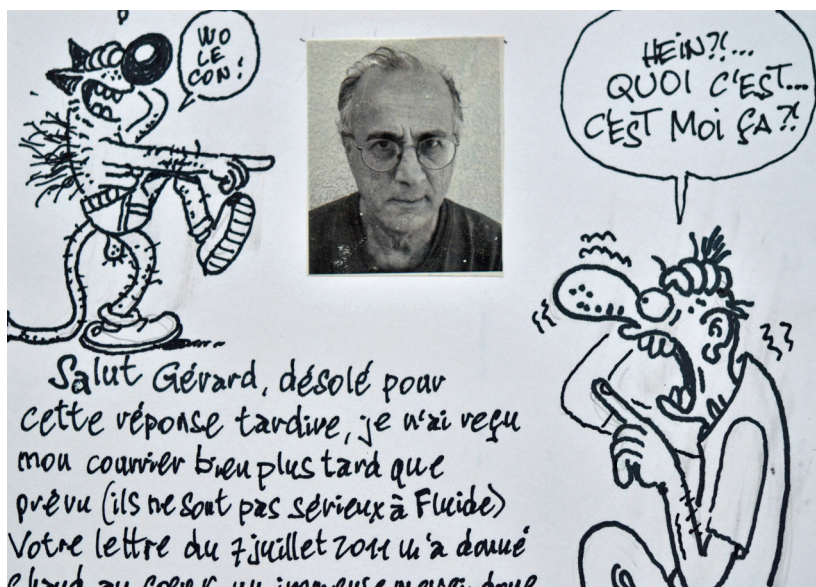 WO
LE
CON!
HEIN?!...
QUOI C'EST...
C'EST MOI ÇA?!
Salut Gérard, désolé pour
cette réponse tardive, je n'ai reçu
mon courrier bien plus tard que
prévu (ils ne sont pas sérieux à Fluide)
Votre lettre du 7 juillet 2011 m'a donné
chaud au coeur, un immense merci donc